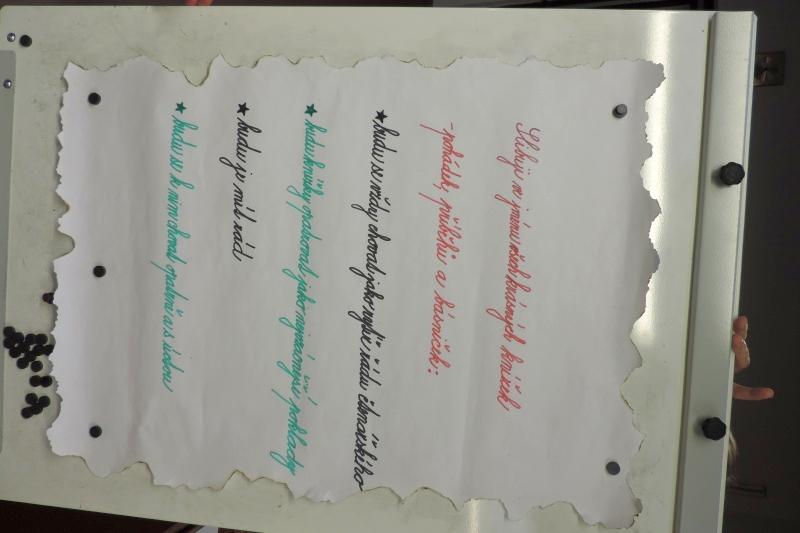 Slibuji ve jménu všech krásných knížek
- pohádek, příběhů a básniček:
★ budu se vždy chovat jako rytíř řádu čtenářského
★ budu knížky opatrovat jako nejvzácnější poklady
★ budu je mít rád
★ budu se k nim chovat opatrně a s úctou